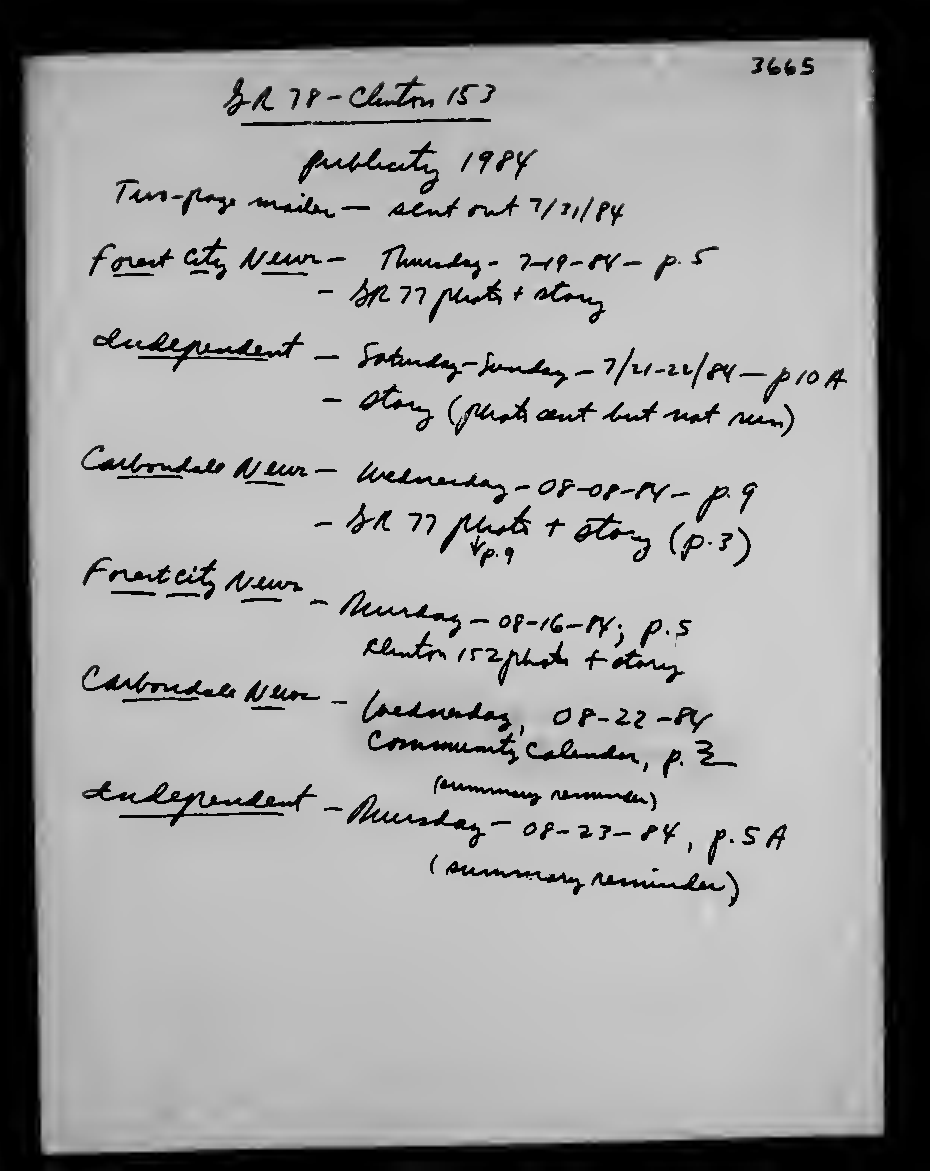 3665
GR 78 - Clinton 153
publicity 1984
Two-page mailer — sent out 7/31/84
Forest City News — Thursday - 7-19-84 - p. 5
- GR 77 photo + story
Independent — Saturday-Sunday - 7/21-22/84 — p 10 A
- story (photo sent but not run)
Carbondale News — Wednesday - 08-08-84 - p. 9
- GR 77 photo + story (p. 3)
↓p. 9
Forest City News — Thursday - 08-16-84; p. 5
Clinton 152 photo + story
Carbondale News — Wednesday, 08-22-84
Community Calendar, p. 2
(summary reminder)
Independent — Thursday - 08-23-84, p. 5 A
(summary reminder)